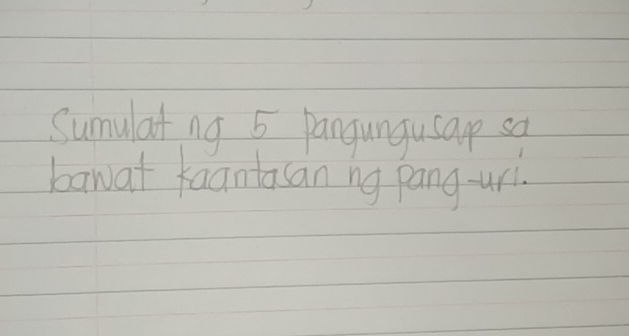 Sumulat ng 5 Pangungusap sa
bawat kaantasan ng pang-uri.